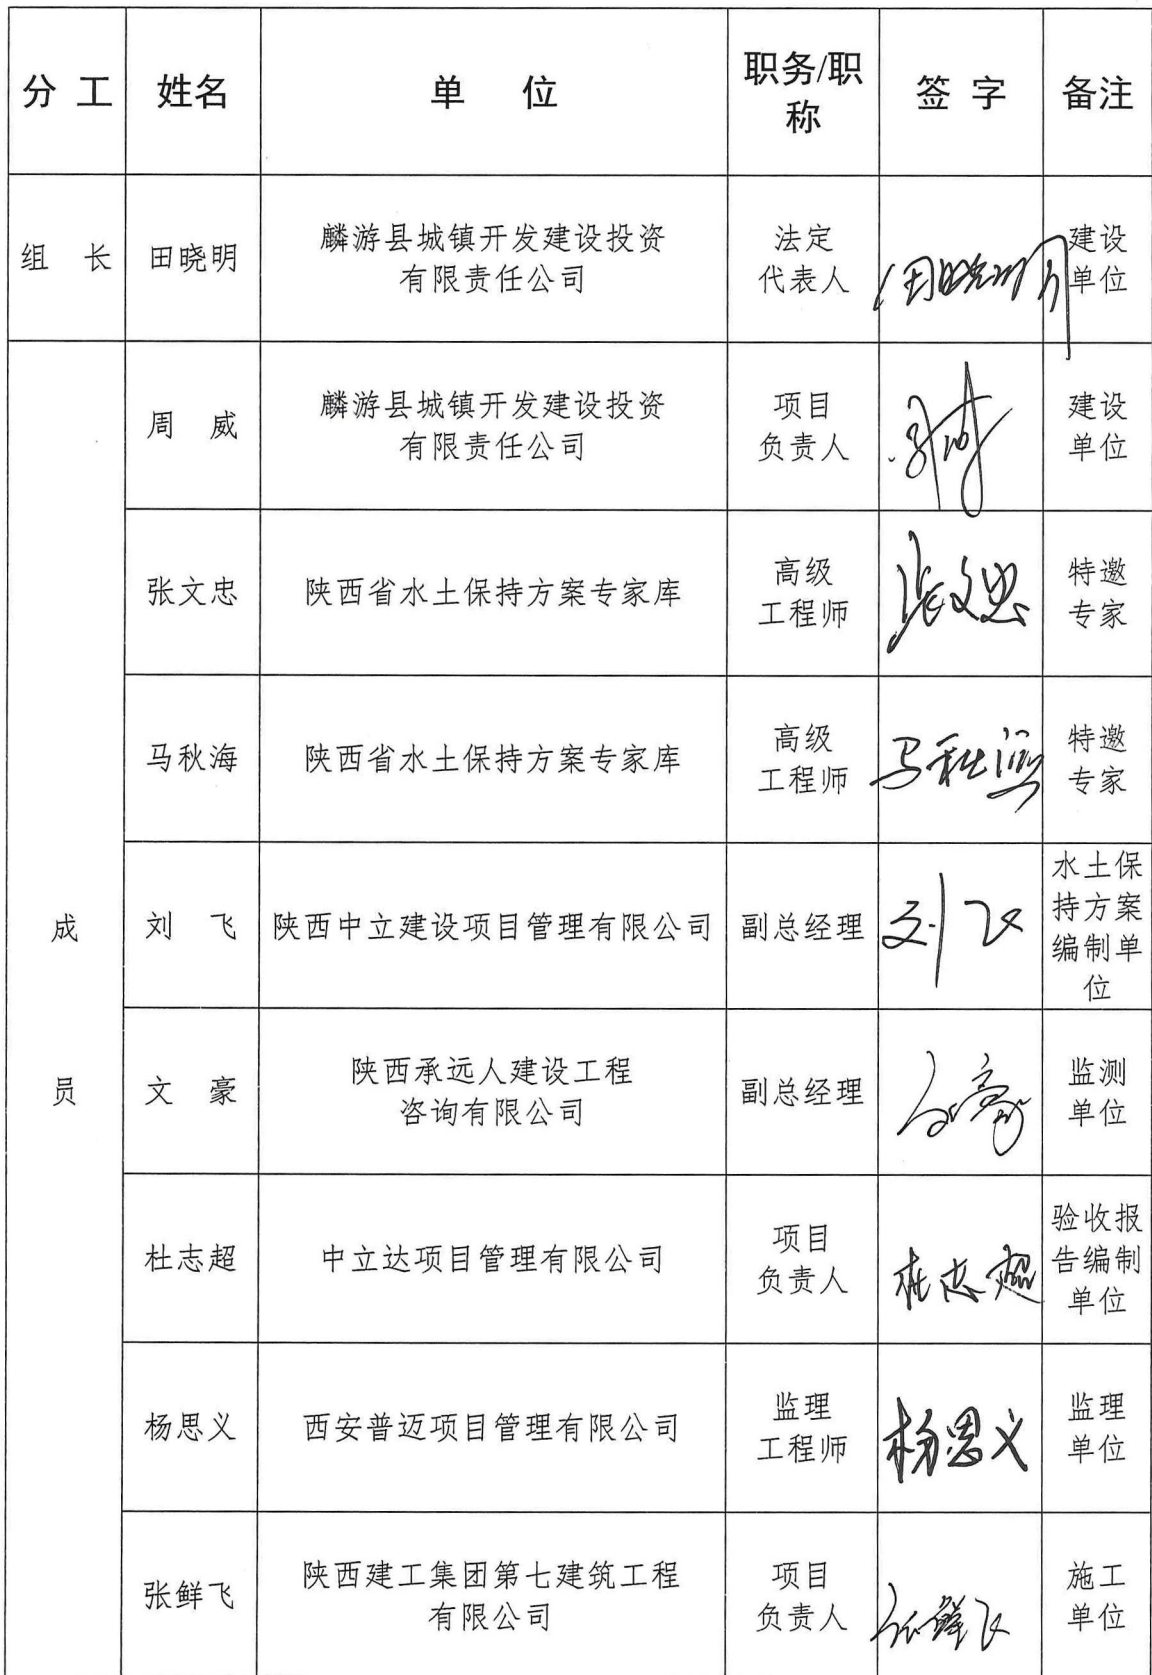 分 工 姓名 单 位 职务/职称 签 字 备注
组 长 田晓明 麟游县城镇开发建设投资有限责任公司 法定代表人 田晓明 建设单位
成员
周 威 麟游县城镇开发建设投资有限责任公司 项目负责人 建设单位
张文忠 陕西省水土保持方案专家库 高级工程师 张文忠 特邀专家
马秋海 陕西省水土保持方案专家库 高级工程师 马秋海 特邀专家
刘 飞 陕西中立建设项目管理有限公司 副总经理 刘飞 水土保持方案编制单位
文 豪 陕西承远人建设工程咨询有限公司 副总经理 文豪 监测单位
杜志超 中立达项目管理有限公司 项目负责人 杜志超 验收报告编制单位
杨思义 西安普迈项目管理有限公司 监理工程师 杨思义 监理单位
张鲜飞 陕西建工集团第七建筑工程有限公司 项目负责人 张鲜飞 施工单位